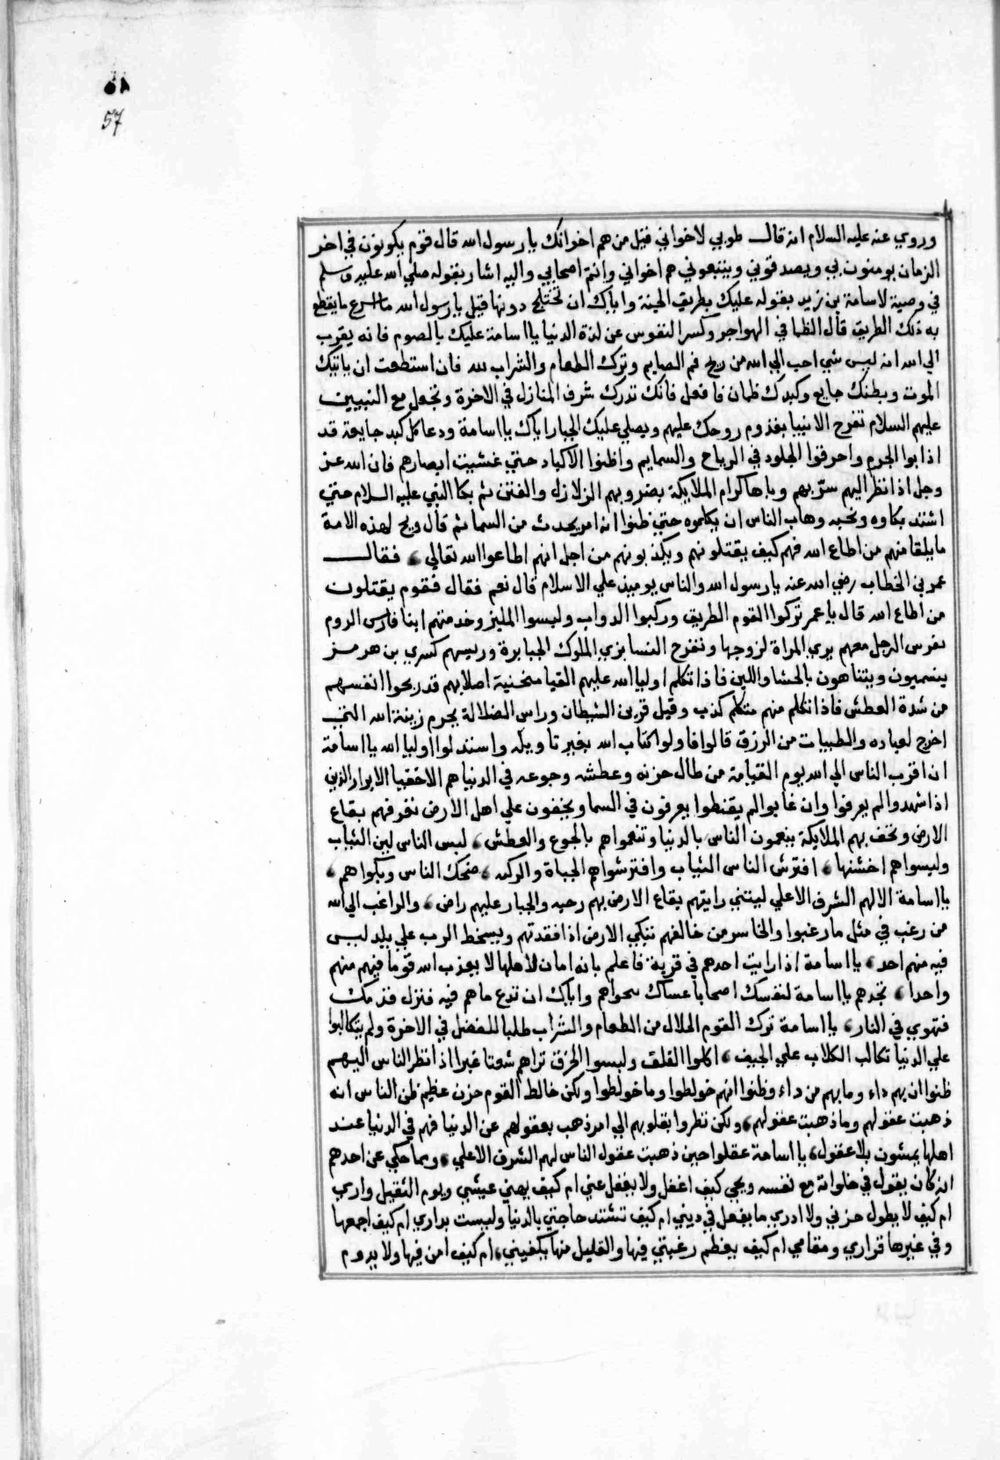 ٥٨
57
وروي عنه عليه السلام انه قال طوبي لاخواني قيل من هم اخوانك يا رسول الله قال قوم يكونون في اخر
الزمان يومنون بي ويصدقوني ويتبعوني هم اخواني وانتم اصحابي واليه اشار بقوله صلي الله عليه وسلم
في وصية لاسامة بن زيد بقوله عليك بطريق الجنة واياك ان تختلج دونها قيل يا رسول الله ما اسرع ما يقطع
به ذلك الطريق قال الظما في الهواجر وكسر النفوس عن لذة الدنيا يا اسامة عليك بالصوم فانه يقرب
الي الله انه ليس شي احب الي الله من ريح فم الصايم وترك الطعام والشراب لله فان استطعت ان ياتيك
الموت وبطنك جايع وكبدك ظمان فافعل فانك تدرك شرف المنازل في الاخرة وتجعل مع النبيين
عليهم السلام تفرح الانبيا بقدوم روحك عليهم ويصلي عليك الجبار اياك يا اسامة ودعا كل كبد جايعة قد
اذابوا الجرم واحرقوا الجلود في الرياح والسمايم واظموا الاكباد حتي غشيت ابصارهم فان الله عز
وجل اذا نظر اليهم سر بهم وباها كرام الملايكة بصرو بهم الزلازل والفتن ثم بكا النبي عليه السلام حتي
اشتد بكاوه ونحبه وهاب الناس ان يكلموه حتي ظنوا انه امر يحدث من السما ثم قال ويح لهذه الامة
ما يلقا منهم من اطاع الله فهم كيف يقتلونهم ويكذبونهم من اجل انهم اطاعوا الله تعالي فقال
عمر بن الخطاب رضي الله عنه يا رسول الله والناس يوميذ علي الاسلام قال نعم فقال فقوم يقتلون
من اطاع الله قال يا عمر تركوا القوم الطريق وركبوا الدواب ولبسوا الملين وخدمتهم ابنا فارس الروم
الرجل معهم بزي المراة لزوجها وتتفرج النسا بزي الملوك الجبابرة ورييسهم كسري بن هرمز
يتسمون ويتباهون بالحشا واللين فاذا تكلم اوليا الله عليهم العبا منحنية اصلابهم قد ذبحوا انفسهم
من شدة العطش فاذا تكلم منهم متكلم كذب وقيل قرين الشيطان وراس الضلالة يحرم زينة الله التي
اخرج لعباده والطيبات من الرزق قالوا فاولوا كتاب الله بغير تاويله واستذلوا اوليا الله يا اسامة
ان اقرب الناس الي الله يوم القيامة من طال حزنه وعطشه وجوعه في الدنيا هم الاخفيا الابرار الذين
اذا شهدوا لم يعرفوا وان غابوا لم يفتقدوا يعرفون في السما ويخفون علي اهل الارض تعرفهم بقاع
الارض وتحف بهم الملايكة ينعمون الناس بالدنيا وتنعموا هم بالجوع والعطش لبس الناس لين الثياب
ولبسوا هم اخشنها افترش الناس الثياب وافترشوا هم الجباة والركب ضحك الناس وبكوا هم
يا اسامة الا لهم الشرف الاعلي ليتني رايتهم بقاع الارض بهم رحبه والجبار عليهم راض والراغب الي الله
من رغب في مثل ما رغبوا والخاسر من خالفهم تبكي الارض اذا فقدتهم ويسخط الرب علي بلد ليس
فيه منهم احد يا اسامة اذا رايت احدهم في قرية فاعلم بانه امان لاهلها لا يعذب الله قوما فيهم منهم
واحدا تجدهم يا اسامة لنفسك اصحابا عساك تنجواهم واياك ان تدع ما هم فيه فتزل قدمك
فتهوي في النار يا اسامة ترك القوم الحلال من الطعام والشراب طلبا للفضل في الاخرة ولم يتكالبوا
علي الدنيا تكالب الكلاب علي الجيف اكلوا الفلق ولبسوا الخرق تراهم شعثا غبرا اذا نظر الناس اليهم
ظنوا ان بهم داء وما بهم من داء وظنوا انهم خولطوا وما خولطوا ولكن خالط القوم حزن عظيم ظن الناس انه
ذهبت عقولهم وما ذهبت عقولهم ولكن نظروا بقلوبهم الي امر ذهب بعقولهم عن الدنيا فهم في الدنيا عند
اهلها يمشون بلا عقول يا اسامة عقلوا حين ذهبت عقول الناس لهم الشرف الاعلي ومما حكي عن احدهم
انه كان يقول في خلواته مع نفسه ويحي كيف اغفل ولا يغفل عني ام كيف يهني عيشي ويوم الثقيل وراي
ام كيف لا يطول حزني ولا ادري ما يفعل في ديني ام كيف تشتد حاجتي بالدنيا وليست بداري ام كيف اجمعها
وفي غيرها قراري ومقامي ام كيف يعظم رغبتي فيها والقليل منها يكفيني ام كيف امن فيها ولا يدوم